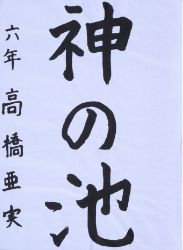 神の池
六年 高橋亜実